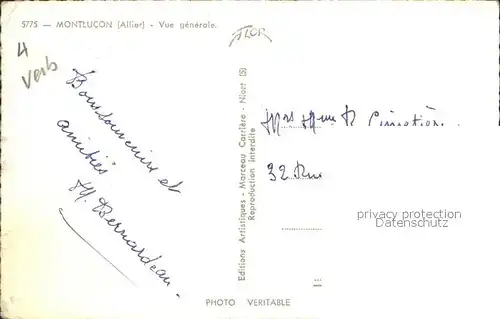 5775 — MONTLUÇON (Allier) - Vue générale.
FLOR
4
Verb
Bons souvenirs et
amitiés
H. Bernardeau.
Editions Artistiques - Marceau Carrière - Niort (S)
Reproduction interdite
32 Rue
privacy protection
www.oldthing.com
PHOTO VERITABLE